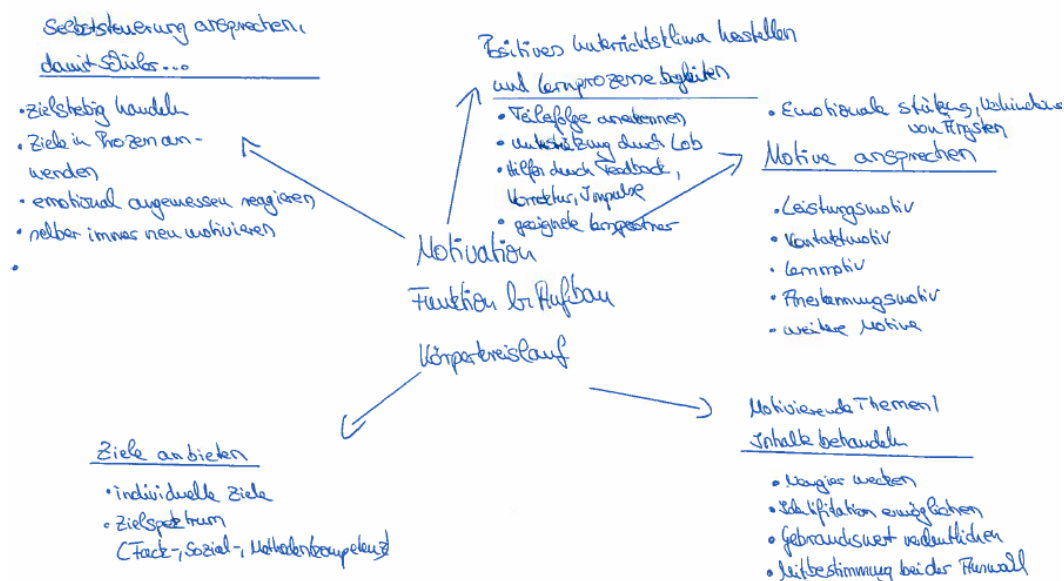 Selbststeuerung ansprechen,
damit Schüler...
• zielstrebig handeln
• Ziele in Prozen an-
wenden
• emotional angemessen reagieren
• selber immer neu motivieren
•
Positives Unterrichtsklima herstellen
und Lernprozesse begleiten
• Teilerfolge anerkennen
• Unterstützung durch Lob
• Hilfen durch Feedback,
Korrektur, Impulse
• geeignete Lernpartner
• Emotionale stützung, Verhinderung
von Ängsten
Motive ansprechen
• Leistungsmotiv
• Kontaktmotiv
• Lernmotiv
• Anerkennungsmotiv
• weitere Motive
Motivation
Funktion &amp; Aufbau
Körperkreislauf
Ziele anbieten
• individuelle Ziele
• Zielspektrum
(Fach-, Sozial-, Methodenkompetenz)
Motivierende Themen /
Inhalte behandeln
• Neugier wecken
• Identifitation ermöglichen
• Gebrauchswert verdeutlichen
• Mitbestimmung bei der Auswahl